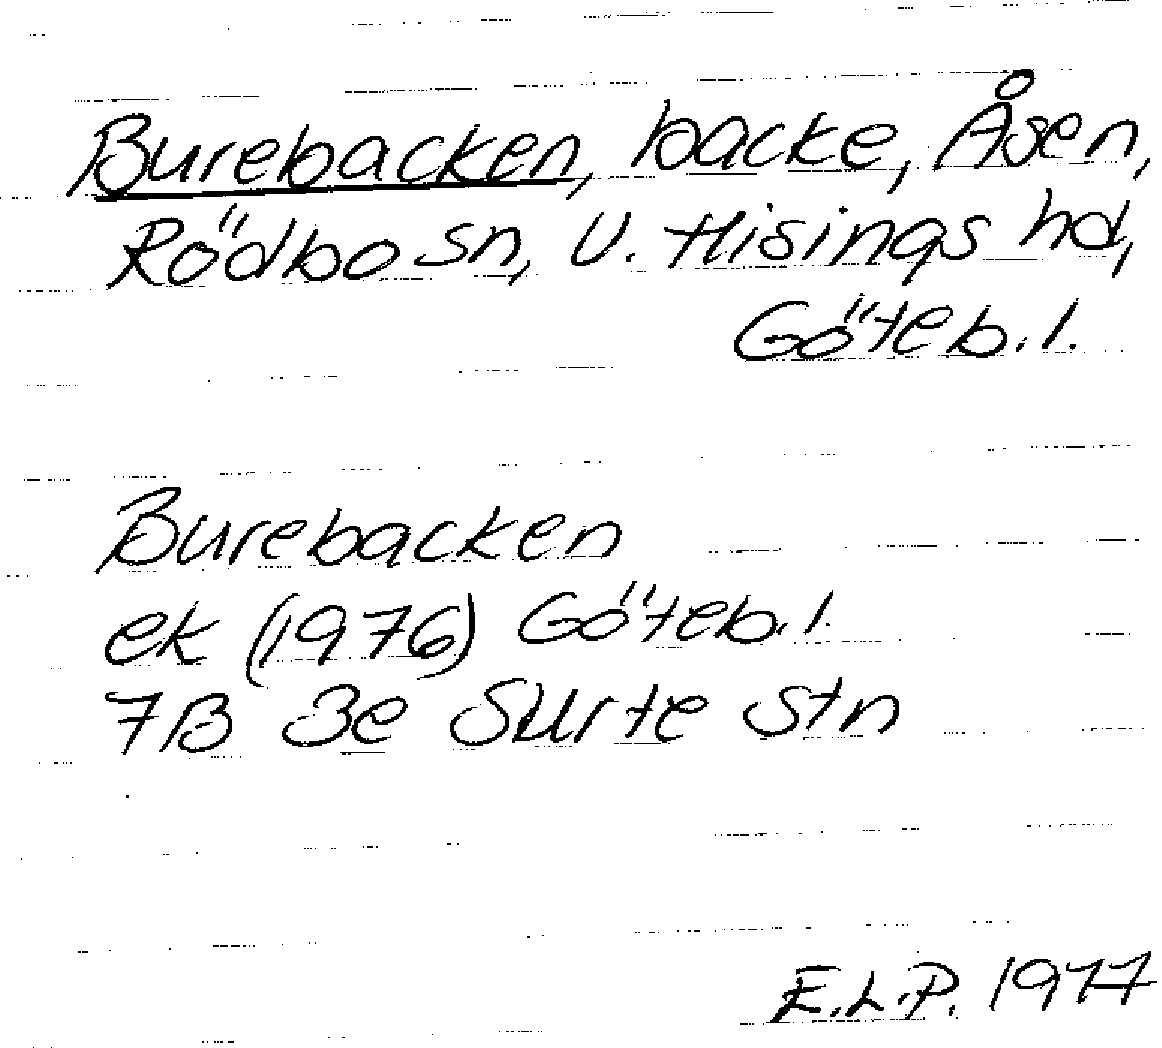 Burebacken, backe, Åsen,
Rödbo sn, V. Hisings hd,
Göteb. l.
Burebacken
ek (1976) Göteb. l.
7B 3e Surte stn
E.L.P. 1977